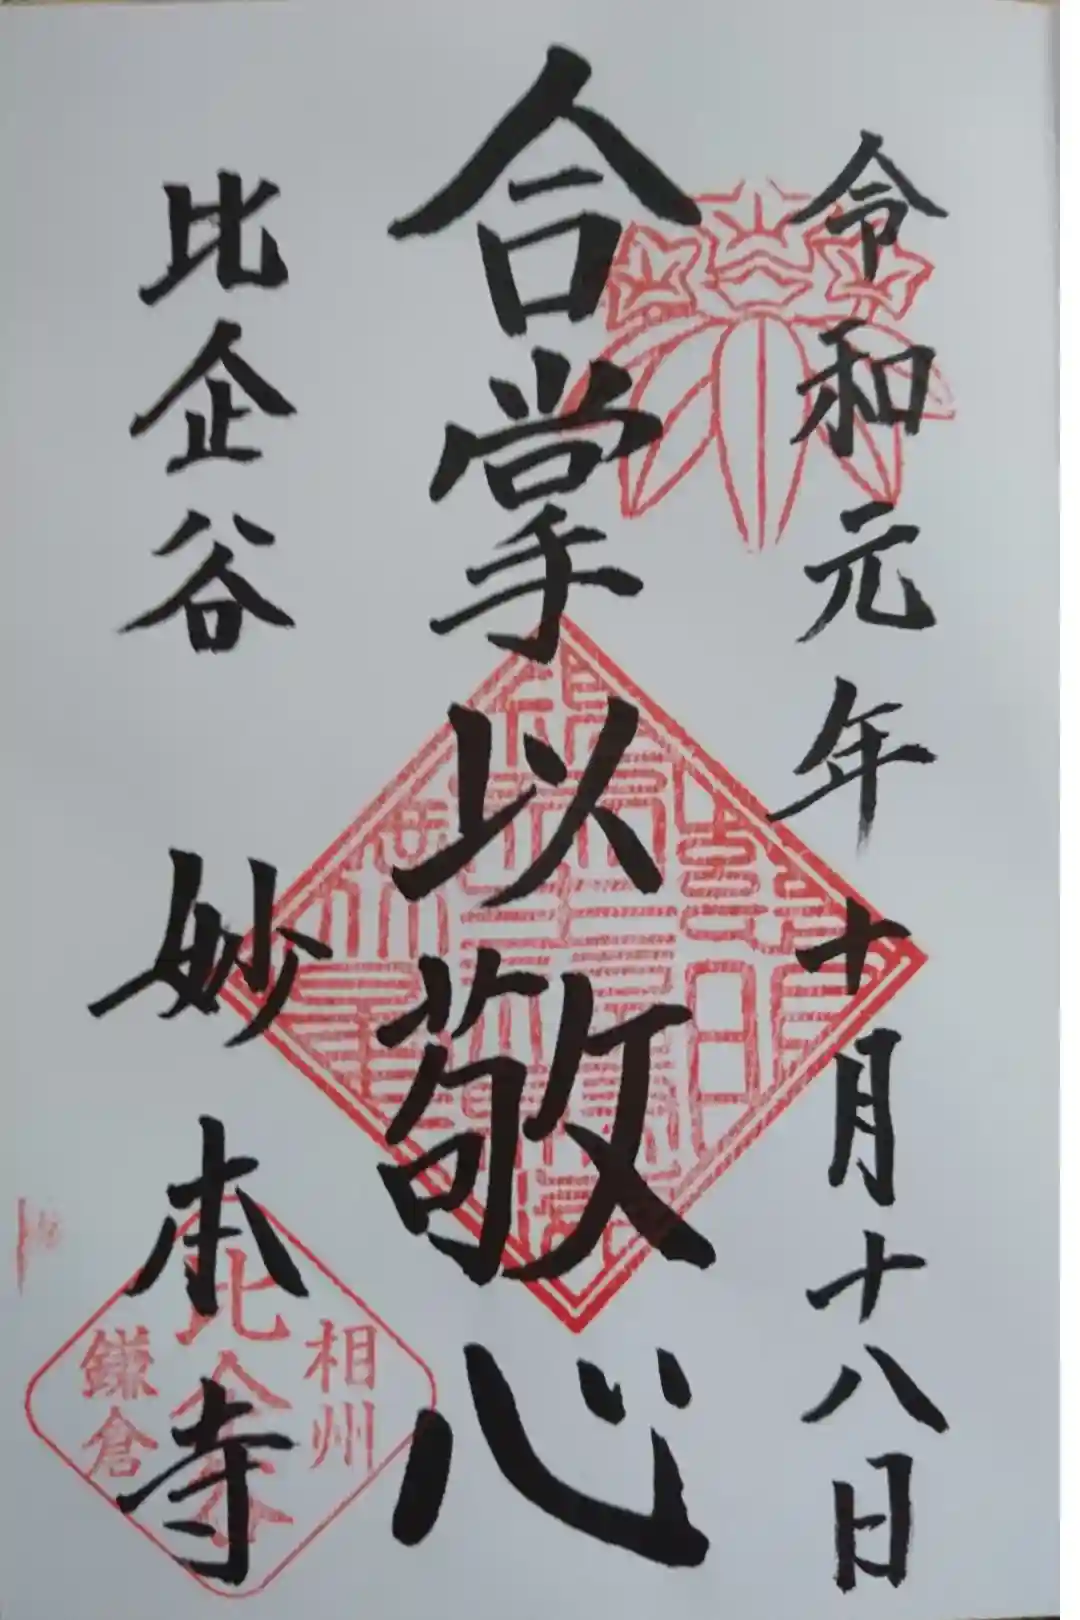 令和元年十月十八日
合掌以敬心
比企谷 妙本寺
相州
比企谷
鎌倉